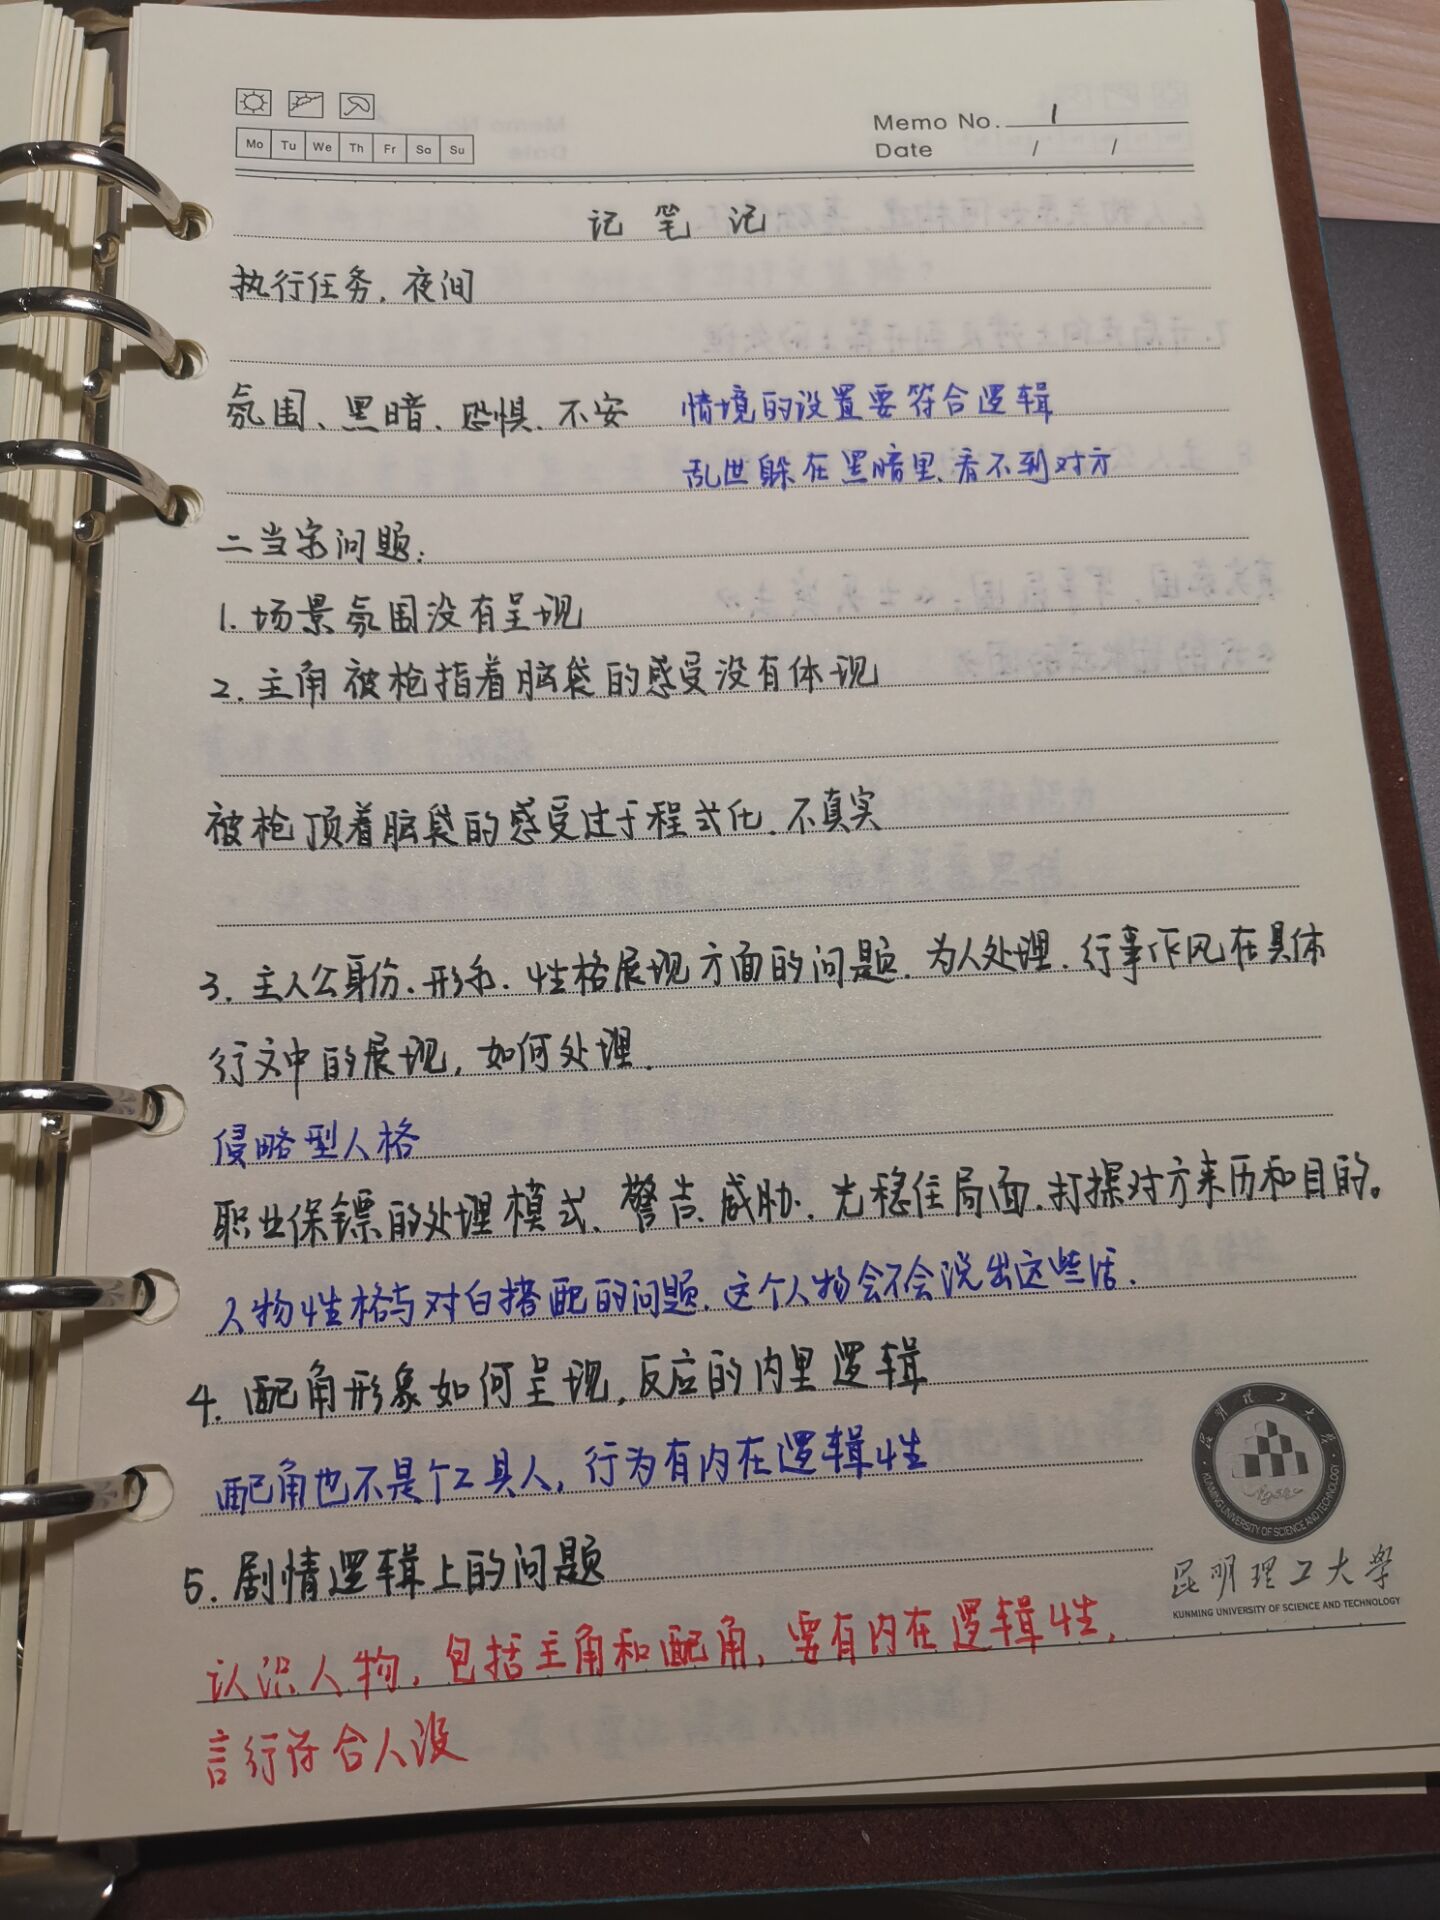 Memo No. 1
Mo Tu We Th Fr Sa Su
Date / /
记 笔 记
执行任务,夜间
氛围、黑暗、恐惧、不安 情境的设置要符合逻辑
乱世躲在黑暗里、看不到对方
二当家问题:
1. 场景氛围没有呈现
2. 主角被枪指着脑袋的感受没有体现
被枪顶着脑袋的感受过于程式化、不真实
3. 主人公身份、形象、性格展现方面的问题、为人处理、行事作风在具体
行文中的展现,如何处理.
侵略型人格
职业保镖的处理模式、警告、威胁、先稳住局面、打探对方来历和目的。
人物性格与对白搭配的问题、这个人物会不会说出这些话.
4. 配角形象如何呈现,反应的内里逻辑
配角也不是个工具人,行为有内在逻辑性
5. 剧情逻辑上的问题
认识人物,包括主角和配角,要有内在逻辑性,
言行符合人设
昆明理工大学
KUNMING UNIVERSITY OF SCIENCE AND TECHNOLOGY
昆明理工大学
KUNMING UNIVERSITY OF SCIENCE AND TECHNOLOGY